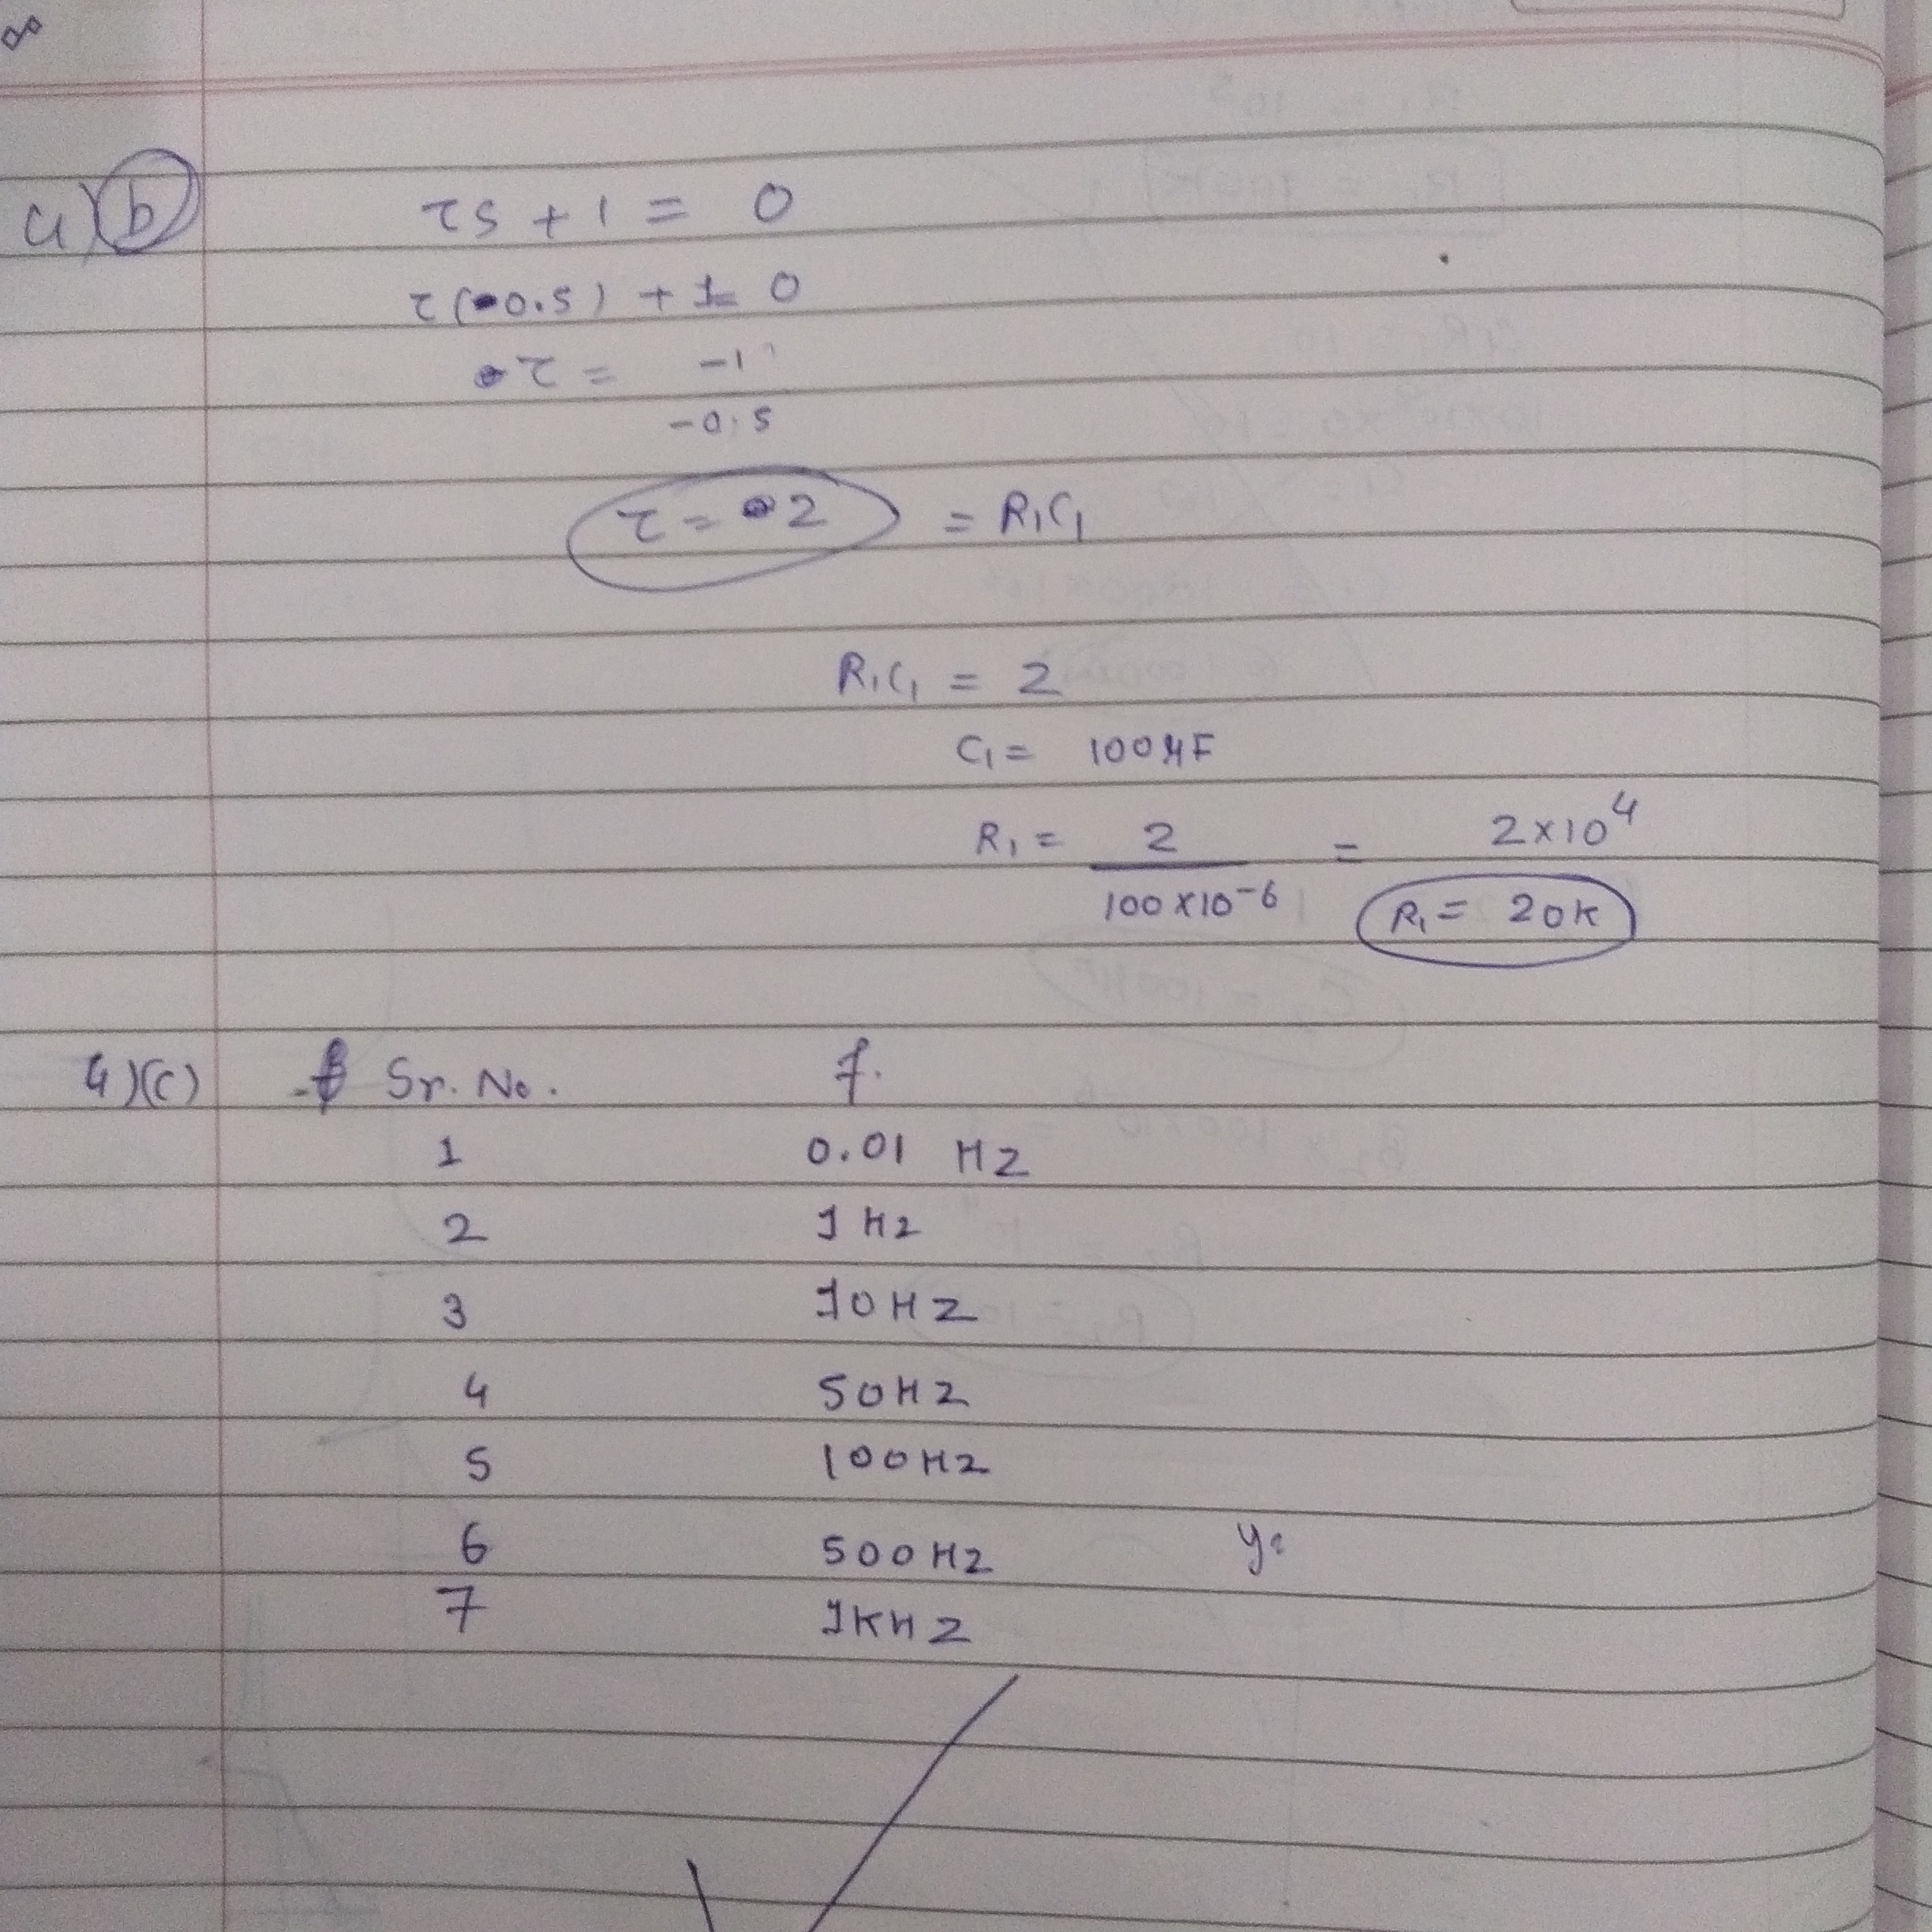 4)(b) τs + 1 = 0
τ(-0.5) + 1 = 0
τ = -1
-0.5
τ = 2 = R₁C₁
R₁C₁ = 2
C₁ = 100μF
R₁ = 2 = 2×10⁴
100×10⁻⁶ R₁ = 20K
4)(c) Sr. No. f.
1 0.01 Hz
2 1 Hz
3 10Hz
4 50Hz
5 100Hz
6 500Hz
7 1KHz